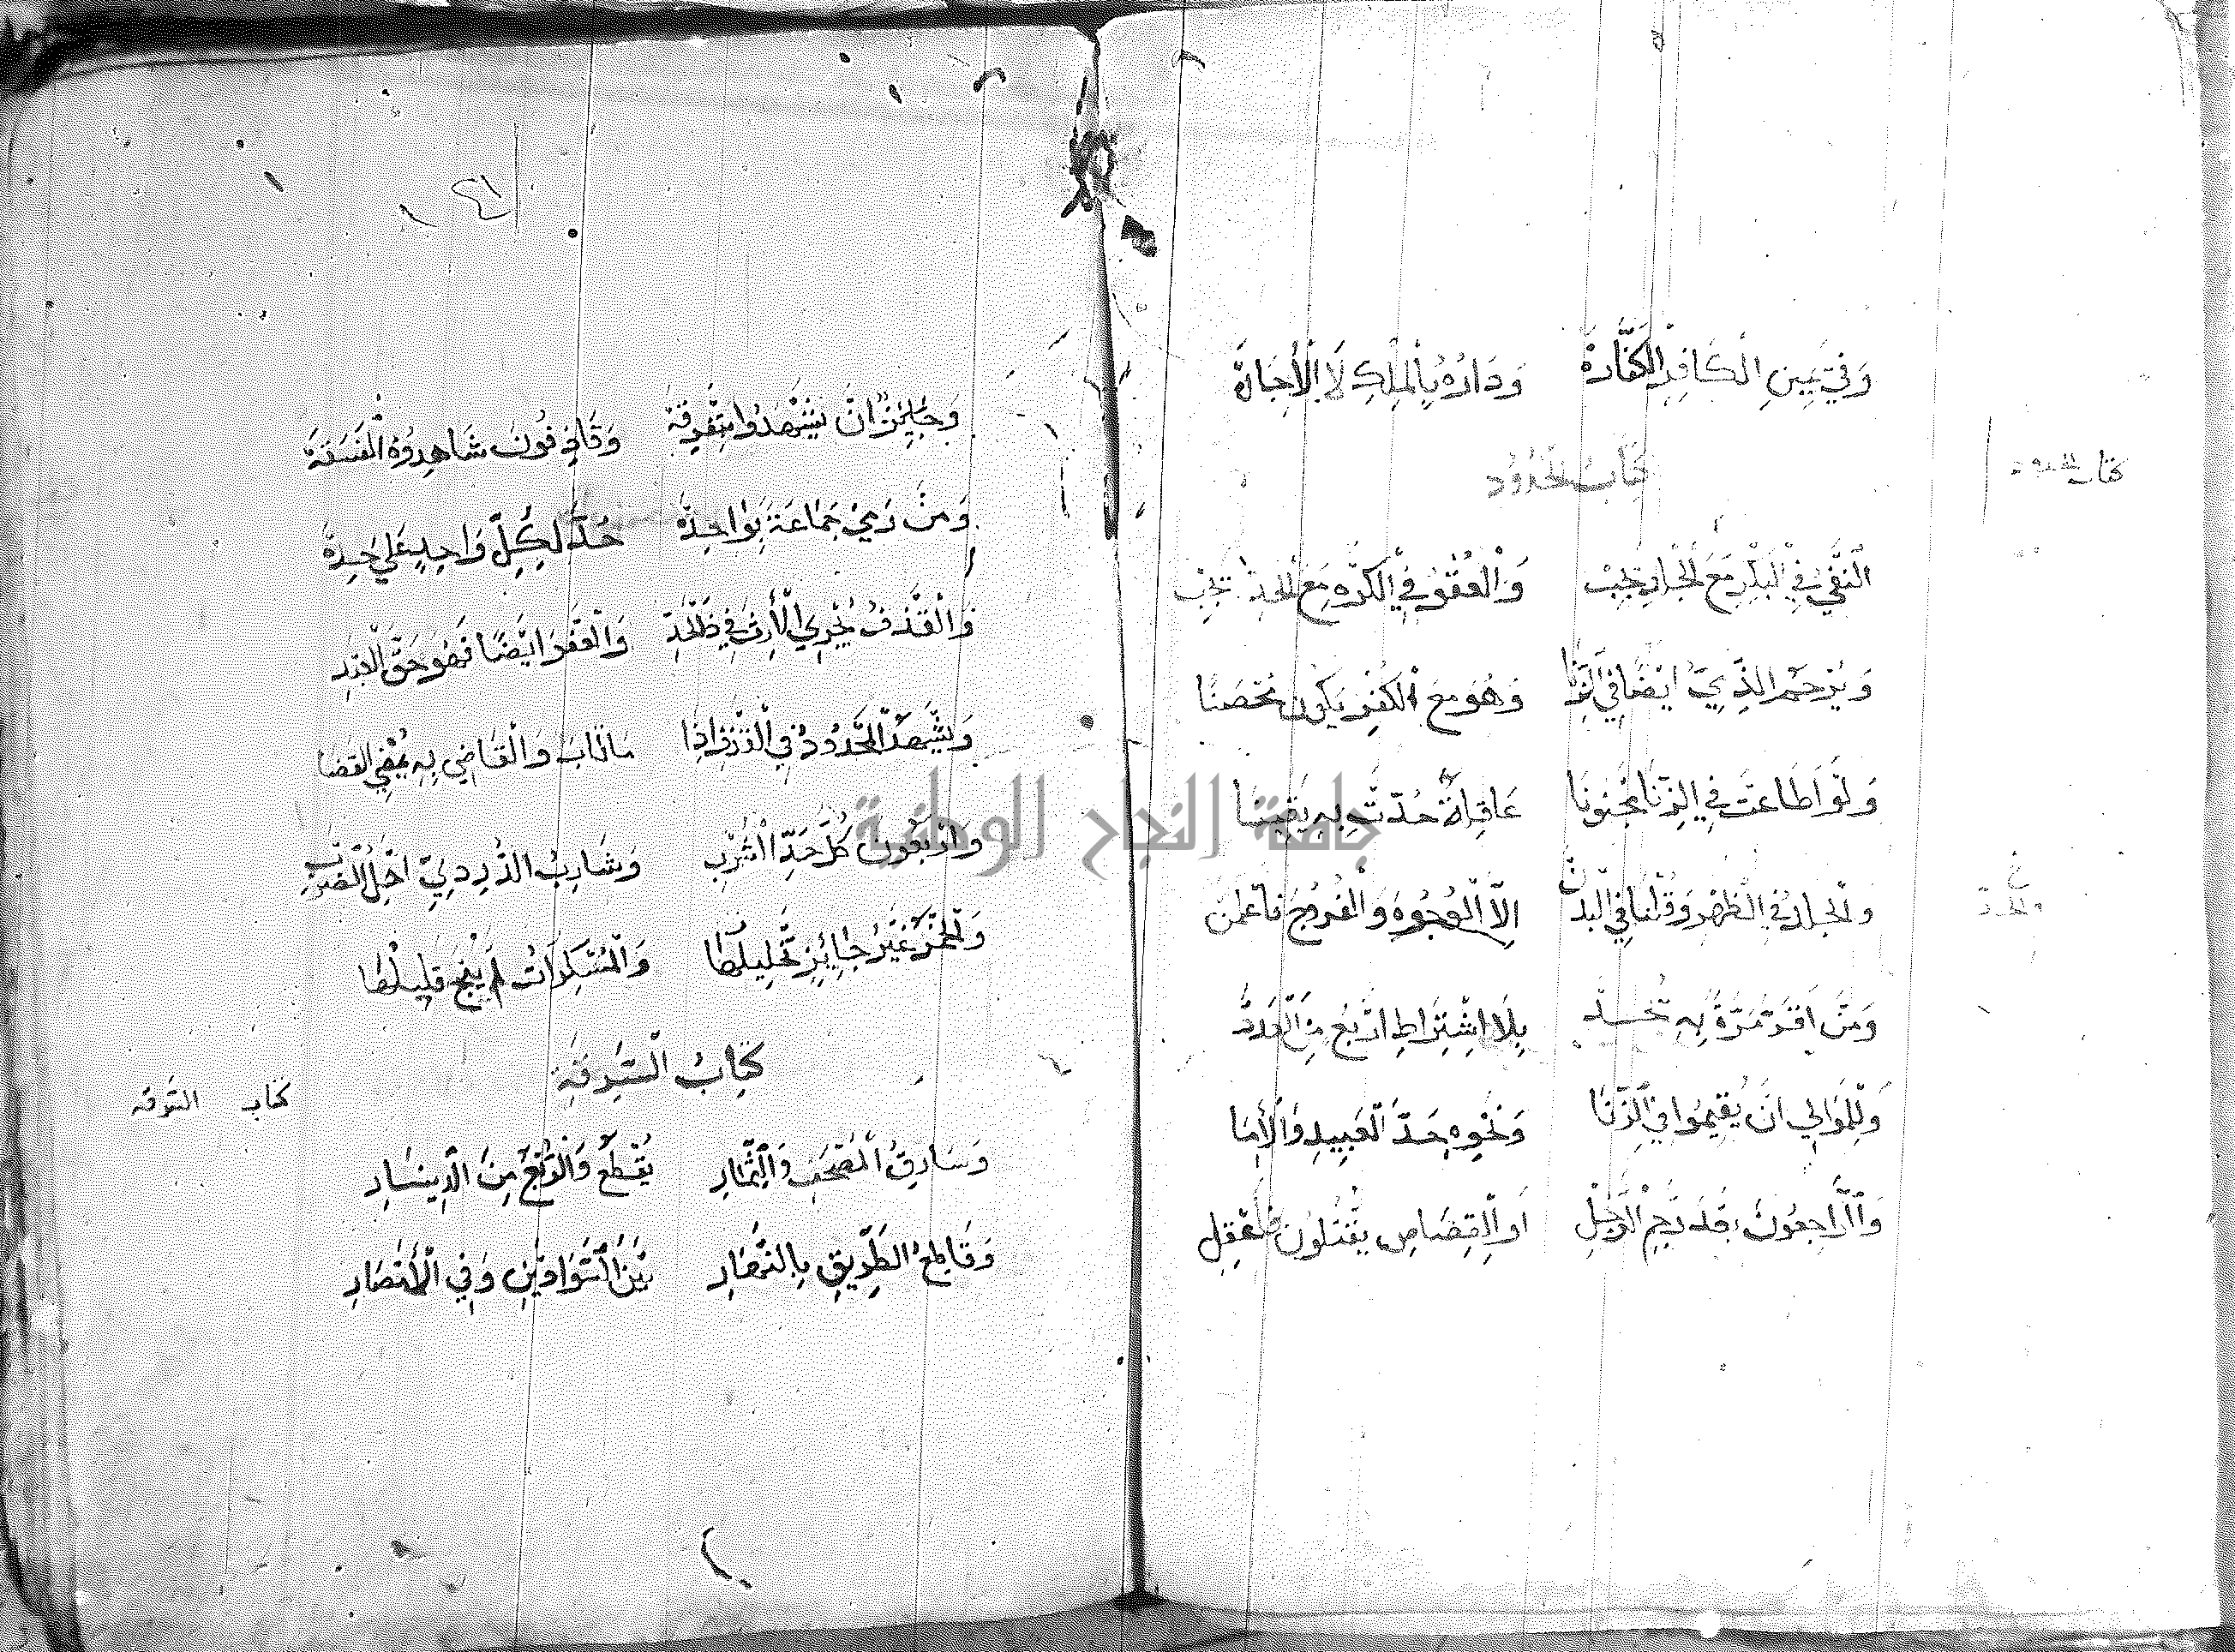 وَفِي يَمِينِ الْكَافِرِ الْكَفَّارَهْ وَدَارُهُ بِالْمِلْكِ لَا الْإِجَارَهْ
كِتَابُ الْحُدُودِ
كتاب الحدود
اَلنَّفْيُ فِي الْبِكْرِ مَعَ الْجَلْدِ يَجِبْ وَالْعُقْرُ فِي الْكُرْهِ مَعَ الْحَدِّ يَجِبْ
وَيُرْجَمُ الذِّمِّيُّ أَيْضًا فِي الزِّنَا وَهُوَ مَعَ الْكُفْرِ يَكُونُ مُحْصَنَا
وَلَوْ أَطَاعَتْ فِي الزِّنَا مَجْنُونَا عَاقِلَةٌ حُدَّتْ بِهِ يَقِينَا
وَالْجَلْدُ فِي الظَّهْرِ وَقُلْنَا فِي الْبَدَنْ إِلَّا الْوُجُوهَ وَالْفُرُوجَ فَاعْلَمَنْ
وَمَنْ أَقَرَّ مَرَّةً بِهِ يُحَدْ بِلَا اشْتِرَاطِ أَرْبَعٍ مِنَ الْعَدَدْ
وَلِلْمَوَالِي أَنْ يُقِيمُوا فِي الزِّنَا وَنَحْوِهِ حَدَّ الْعَبِيدِ وَالْإِمَا
وَالرَّاجِعُونَ بَعْدَ رَجْمِ الرَّجُلِ أَوِ الْقِصَاصِ يُقْتَلُونَ فَاعْقِلِ
١٤١
وَجَائِزٌ أَنْ يَشْهَدُوا مُتَفَرِّقَهْ وَقَاذِفُونَ شَاهِدُوهُ الْفَسَقَهْ
وَمَنْ رَمَى جَمَاعَةً بِوَاحِدَهْ حُدَّ لِكُلِّ وَاحِدٍ عَلَى حِدَهْ
وَالْقَذْفُ يَجْرِي الْإِرْثُ فِي ذَا الْحَدِّ وَالْعَفْوُ أَيْضًا فَهُوَ حَقُّ الْعَبْدِ
وَيَشْهَدُ الْمَحْدُودُ فِي الْقَذْفِ إِذَا مَا تَابَ وَالْقَاضِي بِهِ يُمْضِي الْقَضَا
وَأَرْبَعُونَ كُلُّ حَدِّ الشُّرْبِ وَشَارِبُ الدُّرْدِيِّ أَهْلُ الضَّرْبِ
وَالْخَمْرُ غَيْرُ جَائِزٍ تَخْلِيلُهَا وَالْمُسْكِرَاتُ لَمْ يُبَحْ قَلِيلُهَا
كِتَابُ السَّرِقَةِ
كتاب السرقه
وَسَارِقُ الْمُصْحَفِ وَالثِّمَارِ يُقْطَعُ وَالرُّبْعُ مِنَ الدِّينَارِ
وَقَاطِعُ الطَّرِيقِ بِالنَّهَارِ بَيْنَ السَّوَادَيْنِ وَفِي الْأَمْصَارِ
جامعة النجاح الوطنية